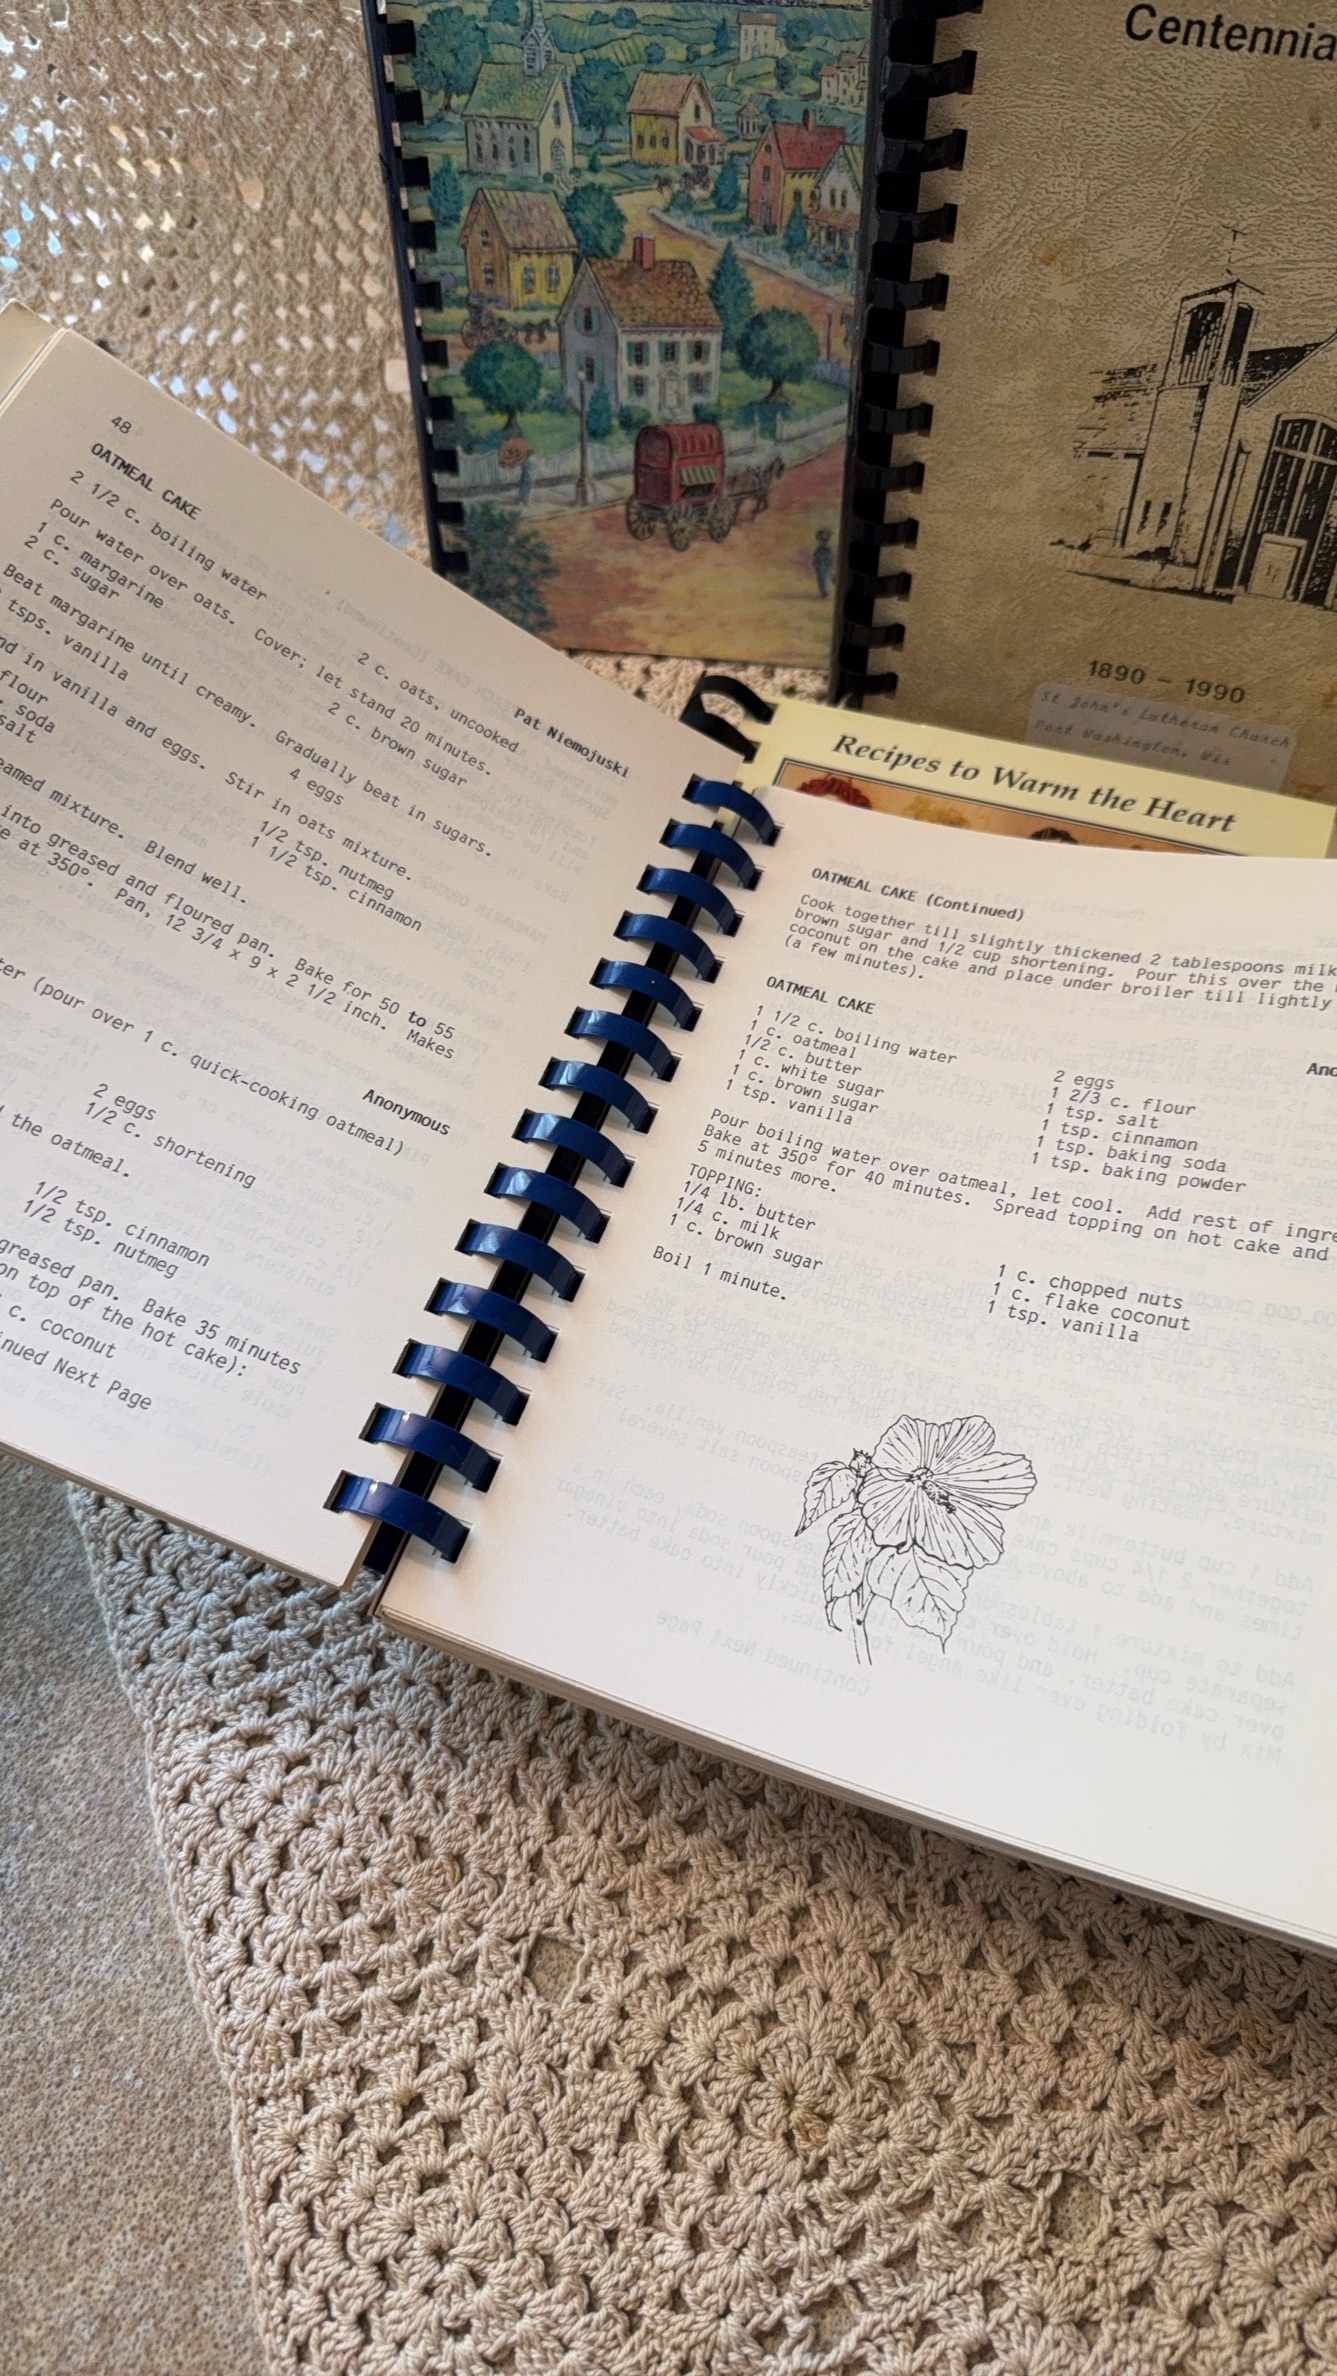 Centennia
1890 - 1990
St John's Lutheran Church
Port Washington, Wis
Recipes to Warm the Heart
48
OATMEAL CAKE
Pat Niemojuski
2 1/2 c. boiling water
2 c. oats, uncooked
Pour water over oats. Cover; let stand 20 minutes.
1 c. margarine
2 c. brown sugar
2 c. sugar
4 eggs
Beat margarine until creamy. Gradually beat in sugars.
tsps. vanilla
1/2 tsp. nutmeg
nd in vanilla and eggs. Stir in oats mixture.
flour
1 1/2 tsp. cinnamon
soda
salt
eamed mixture. Blend well.
into greased and floured pan. Bake for 50 to 55
e at 350°. Pan, 12 3/4 x 9 x 2 1/2 inch. Makes
Anonymous
ter (pour over 1 c. quick-cooking oatmeal)
2 eggs
1/2 c. shortening
the oatmeal.
1/2 tsp. cinnamon
1/2 tsp. nutmeg
greased pan. Bake 35 minutes
on top of the hot cake):
c. coconut
nued Next Page
OATMEAL CAKE (Continued)
Cook together till slightly thickened 2 tablespoons milk
brown sugar and 1/2 cup shortening. Pour this over the
coconut on the cake and place under broiler till lightly
(a few minutes).
OATMEAL CAKE
Ano
1 1/2 c. boiling water
1 c. oatmeal
1/2 c. butter
1 c. white sugar
1 c. brown sugar
1 tsp. vanilla
2 eggs
1 2/3 c. flour
1 tsp. salt
1 tsp. cinnamon
1 tsp. baking soda
1 tsp. baking powder
Pour boiling water over oatmeal, let cool. Add rest of ingre
Bake at 350° for 40 minutes. Spread topping on hot cake and
5 minutes more.
TOPPING:
1/4 lb. butter
1/4 c. milk
1 c. brown sugar
1 c. chopped nuts
1 c. flake coconut
1 tsp. vanilla
Boil 1 minute.